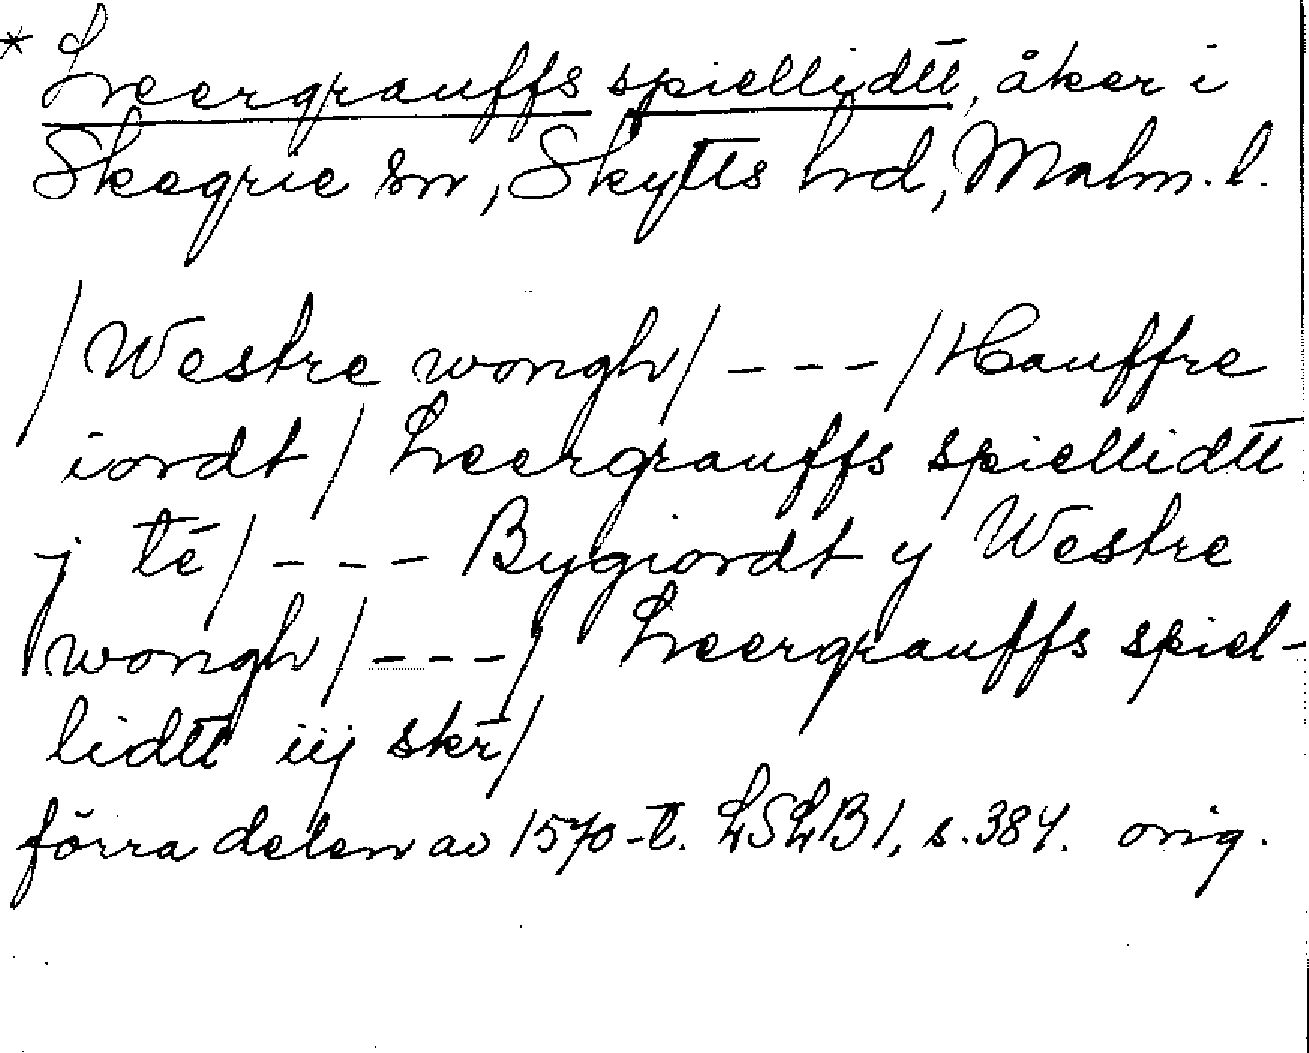 * Leergrauffs spiellidtt, åker i
Skegrie sn, Skytts hd, Malm. l.
/Westre wongh/ - - - /Hauffre
iordt/ Leergrauffs spiellidtt
j té/ - - - Bygiordt y Westre
wongh/ - - - / Leergrauffs spiel-
lidtt iij skr̄/
förra delen av 1570-t. LSLB 1, s. 384. orig.